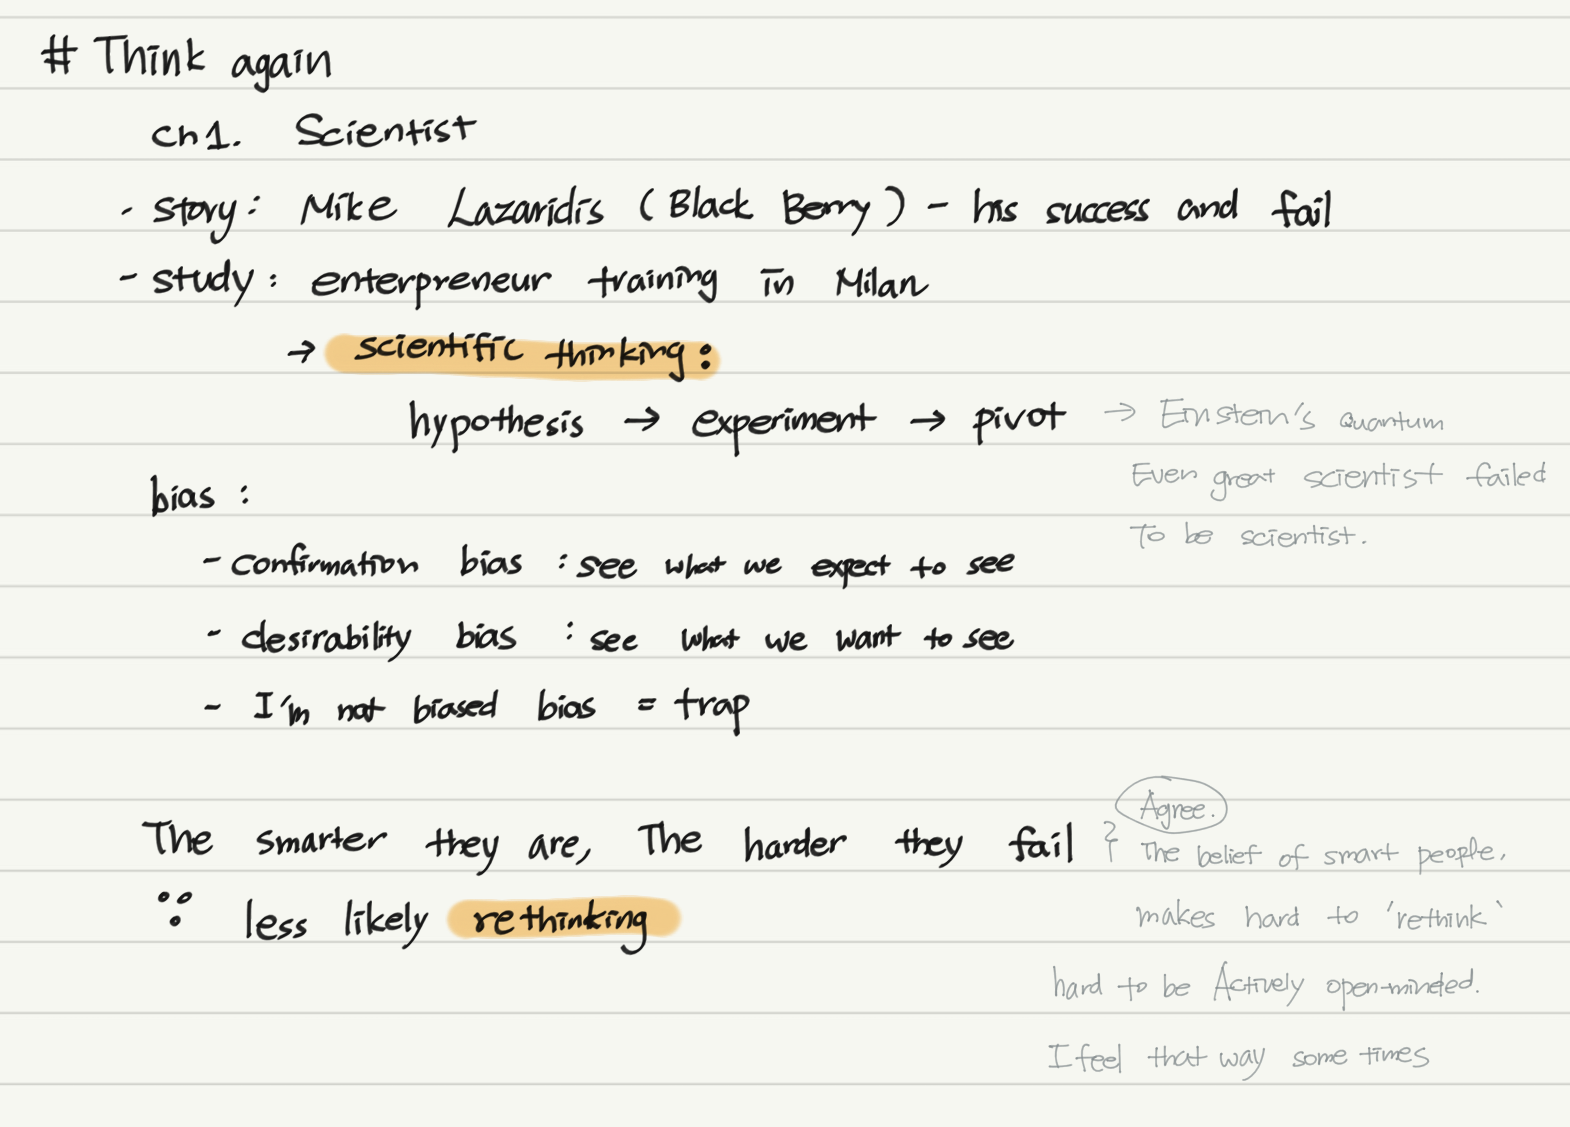 # Think again
ch1. Scientist
- story: Mike Lazaridis (Black Berry) - his success and fail
- study: enterpreneur training in Milan
→ scientific thinking:
hypothesis → experiment → pivot → Einstein's Quantum
Even great scientist failed
bias :
To be scientist.
- confirmation bias : see what we expect to see
- desirability bias : see what we want to see
- I'm not biased bias = trap
Agree.
The smarter they are, The harder they fail
The belief of smart people,
∵ less likely rethinking
makes hard to 'rethink`
hard to be Actively open-minded.
I feel that way some times